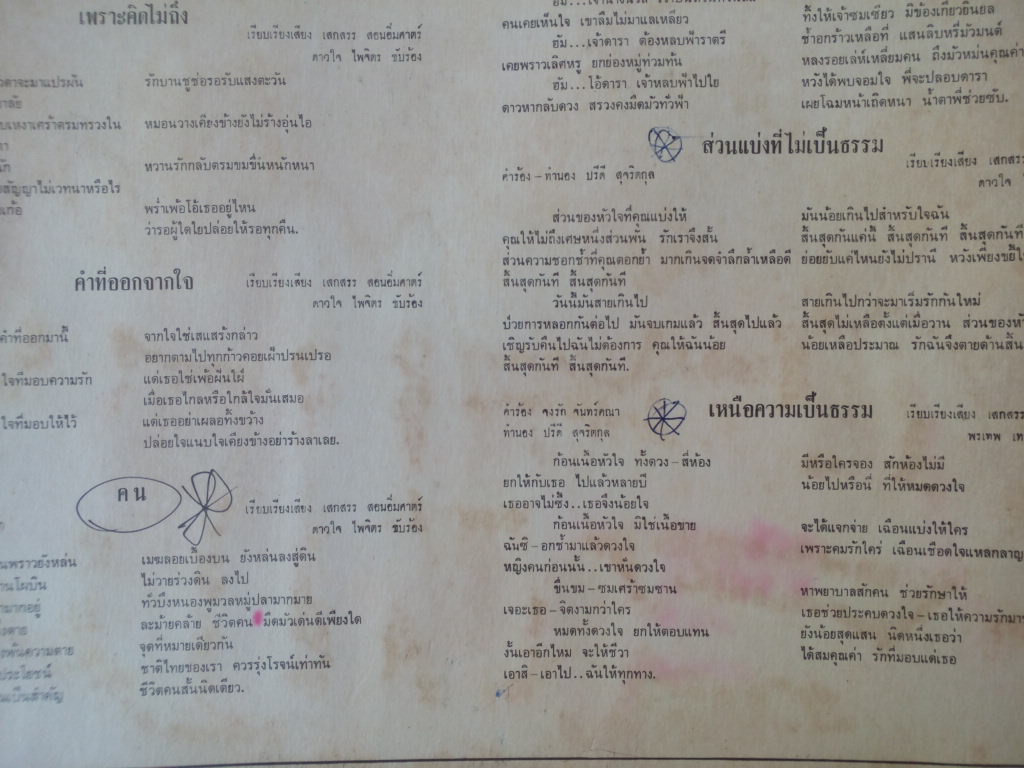 เพราะคิดไม่ถึง
เรียบเรียงเสียง เสกสรร สอนอิ่มศาตร์
ดาวใจ ไพจิตร ขับร้อง
วดาจะมาแปรผัน รักบานชูช่อรอรับแสงตะวัน
าลัย
บเหงาเศร้าตรมทรวงใน หมอนวางเคียงข้างยังไม่ร้างอุ่นไอ
หวานรักกลับตรมขมขื่นหนักหนา
สัญญาไม่เวทนาหรือไร
พร่ำเพ้อโอ้เธออยู่ไหน
ว่ารอผู้ใดใยปล่อยให้รอทุกคืน.
คำที่ออกจากใจ
เรียบเรียงเสียง เสกสรร สอนอิ่มศาตร์
ดาวใจ ไพจิตร ขับร้อง
คำที่ออกมานี้ จากใจใช่เสแสร้งกล่าว
อยากตามไปทุกก้าวคอยเฝ้าปรนเปรอ
ใจที่มอบความรัก แด่เธอใช่เพ้อฝันใฝ่
เมื่อเธอไกลหรือใกล้ใจมั่นเสมอ
ใจที่มอบให้ไว้ แด่เธออย่าเผลอทิ้งขว้าง
ปล่อยใจแนบใจเคียงข้างอย่าร้างลาเลย.
คน
เรียบเรียงเสียง เสกสรร สอนอิ่มศาตร์
ดาวใจ ไพจิตร ขับร้อง
นพราวยังหล่น เมฆลอยเบื้องบน ยังหล่นลงสู่ดิน
านโผบิน ไม่วายร่วงดิน ลงไป
ามากอยู่ ทั่วบึงหนองพูมวลหมู่ปลามากมาย
ละม้ายคล้าย ชีวิตคน มืดมัวเด่นดีเพียงใด
นความตาย จุดที่หมายเดียวกัน
ประโยชน์ ชาติไทยของเรา ควรรุ่งโรจน์เท่าทัน
นเป็นสำคัญ ชีวิตคนสั้นนิดเดียว.
คนเคยเห็นใจ เขาลืมไม่มาแลเหลียว
ฮัม...เจ้าดารา ต้องหลบฟ้าราตรี
เคยพราวเลิศหรู ยกย่องหมู่ท่วมทัน
ฮัม...ไอ้ดารา เจ้าหลบฟ้าไปใย
ดาวหากลับดวง สรวงคงมืดมัวทั่วฟ้า
ทิ้งให้เจ้าซมเซียว มีข้องเกี่ยวยินยล
ช้ำอกร้าวเหลือที่ แสนลิบหรี่มัวมนต์
หลงรอยเล่ห์เหลี่ยมคน ถึงมัวหม่นคุณค่า
หวังได้พบจอมใจ พี่จะปลอบดารา
เผยโฉมหน้าเถิดหนา น้ำตาพี่ช่วยซับ.
ส่วนแบ่งที่ไม่เป็นธรรม
คำร้อง – ทำนอง ปรีดี สุจริตกุล
เรียบเรียงเสียง เสกสร
ดาวใจ
ส่วนของหัวใจที่คุณแบ่งให้ มันน้อยเกินไปสำหรับใจฉัน
คุณให้ไม่ถึงเศษหนึ่งส่วนพัน รักเราจึงสั้น สิ้นสุดกันแค่นี้ สิ้นสุดกันที สิ้นสุดกันที
ส่วนความชอกช้ำที่คุณตอกย้ำ มากเกินจดจำลึกล้ำเหลือดี ย่อยยับแค่ไหนยังไม่ปรานี หวังเพียงขยี้
สิ้นสุดกันที สิ้นสุดกันที
วันนี้มันสายเกินไป สายเกินไปกว่าจะมาเริ่มรักกันใหม่
ป่วยการหลอกกันต่อไป มันจบเกมแล้ว สิ้นสุดไปแล้ว สิ้นสุดไม่เหลือตั้งแต่เมื่อวาน ส่วนของหัว
เชิญรับคืนไปฉันไม่ต้องการ คุณให้ฉันน้อย น้อยเหลือประมาณ รักฉันจึงตายด้านสิ้น
สิ้นสุดกันที สิ้นสุดกันที.
เหนือความเป็นธรรม
คำร้อง จงรัก จันทร์คณา
ทำนอง ปรีดี สุจริตกุล
เรียบเรียงเสียง เสกสรร
พรเทพ เท
ก้อนเนื้อหัวใจ ทั้งดวง – สี่ห้อง มีหรือใครจอง สักห้องไม่มี
ยกให้กับเธอ ไปแล้วหลายปี น้อยไปหรือนี่ ที่ให้หมดดวงใจ
เธออาจไม่ซึ้ง..เธอจึงน้อยใจ
ก้อนเนื้อหัวใจ มิใช่เนื้อขาย จะได้แจกจ่าย เฉือนแบ่งให้ใคร
ฉันซิ – อกช้ำมาแล้วดวงใจ เพราะคมรักใคร่ เฉือนเชือดใจแหลกลาญ
หญิงคนก่อนนั้น..เขาหั่นดวงใจ
ขื่นขม – ซมเศร้าซมซาน หาพยาบาลสักคน ช่วยรักษาให้
เจอะเธอ – จิตงามกว่าใคร เธอช่วยประคบดวงใจ – เธอให้ความรักมา
หมดทั้งดวงใจ ยกให้ตอบแทน ยังน้อยสุดแสน นิดหนึ่งเธอว่า
งั้นเอาอีกไหม จะให้ชีวา ได้สมคุณค่า รักที่มอบแด่เธอ
เอาสิ – เอาไป..ฉันให้ทุกทาง.